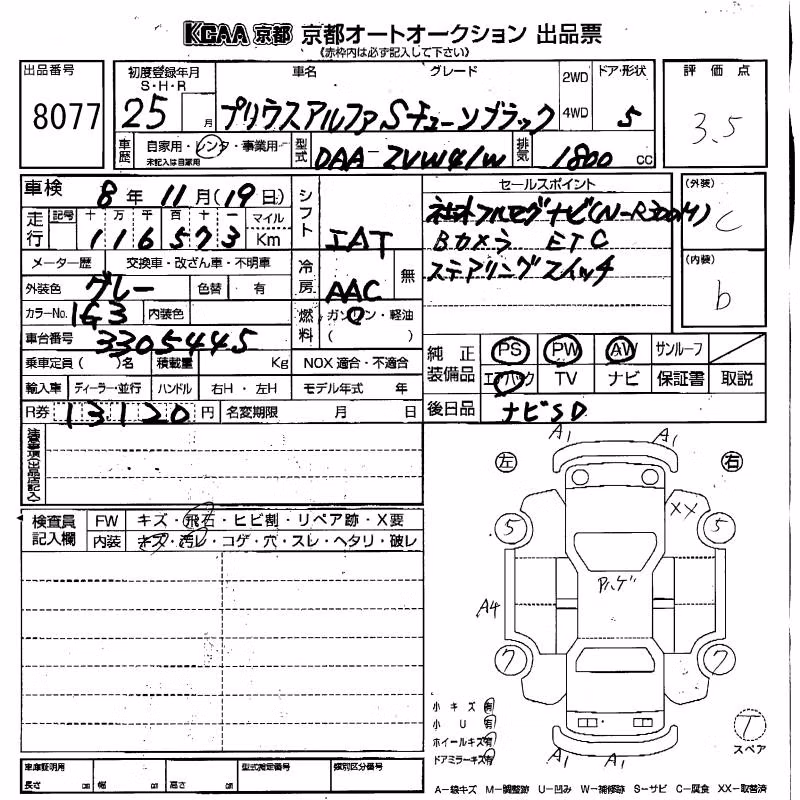 KCAA 京都 京都オートオークション 出品票
(赤枠内は必ず記入して下さい)
出品番号 初度登録年月 車名 グレード 2WD ドア・形状 評価点
S・H・R
8077 25 月 プリウスアルファ Sチューンブラック 4WD 5 3.5
車歴 自家用・レンタ・事業用 型式 DAA-ZVW41W 排気 1800 CC
未記入は自家用
車検 8年 11月(19日) シフト IAT セールスポイント (外装) C
走行 記号 十 万 千 百 十 一 マイル
116573 Km
社外フルセグナビ(N-R300H)
Bカメラ ETC
ステアリングスイッチ
メーター歴 交換車・改ざん車・不明車 冷房 AAC 無 (内装) b
外装色 グレー 色替 有
カラーNo. 1G3 内装色 燃料 ガソリン・軽油
( )
車台番号 3305445
純正装備品 PS PW AW サンルーフ
エアバック TV ナビ 保証書 取説
乗車定員( )名 積載量 Kg NOX 適合・不適合
輸入車 ディーラー・並行 ハンドル 右H・左H モデル年式 年
R券 13120 円 名変期限 月 日 後日品 ナビSD
注意事項(出品店記入)
検査員記入欄 FW キズ・飛石・ヒビ割・リペア跡・X要
内装 キズ・汚レ・コゲ・穴・スレ・ヘタリ・破レ
A1 A1
左 右
XX
5 5
A4
7 7
小キズ 有
小U 有
ホイールキズ 有
ドアミラーキズ 有
A1 A1
T
スペア
車庫証明用 型式指定番号 類別区分番号
長さ cm 幅 cm 高さ cm
A-線キズ M-調整跡 U-凹み W-補修跡 S-サビ C-腐食 XX-取替済